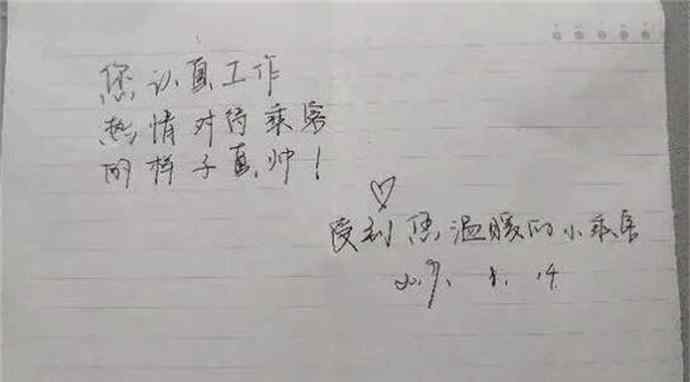 您认真工作
热情对待乘客
的样子真帅！
受到您温暖的小乘客
2019. 1. 14